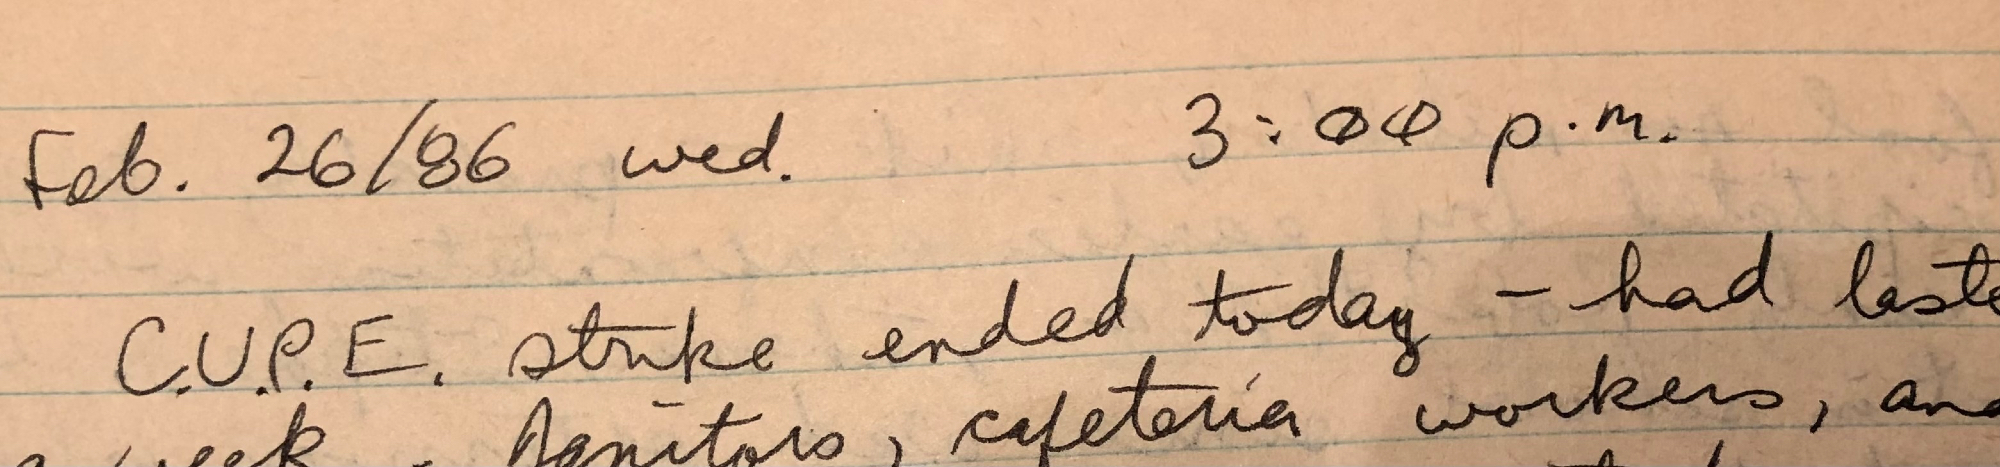 Feb. 26/86 wed. 3:00 p.m.
C.U.P.E. strike ended today - had laste
week - Janitors, cafeteria workers, and